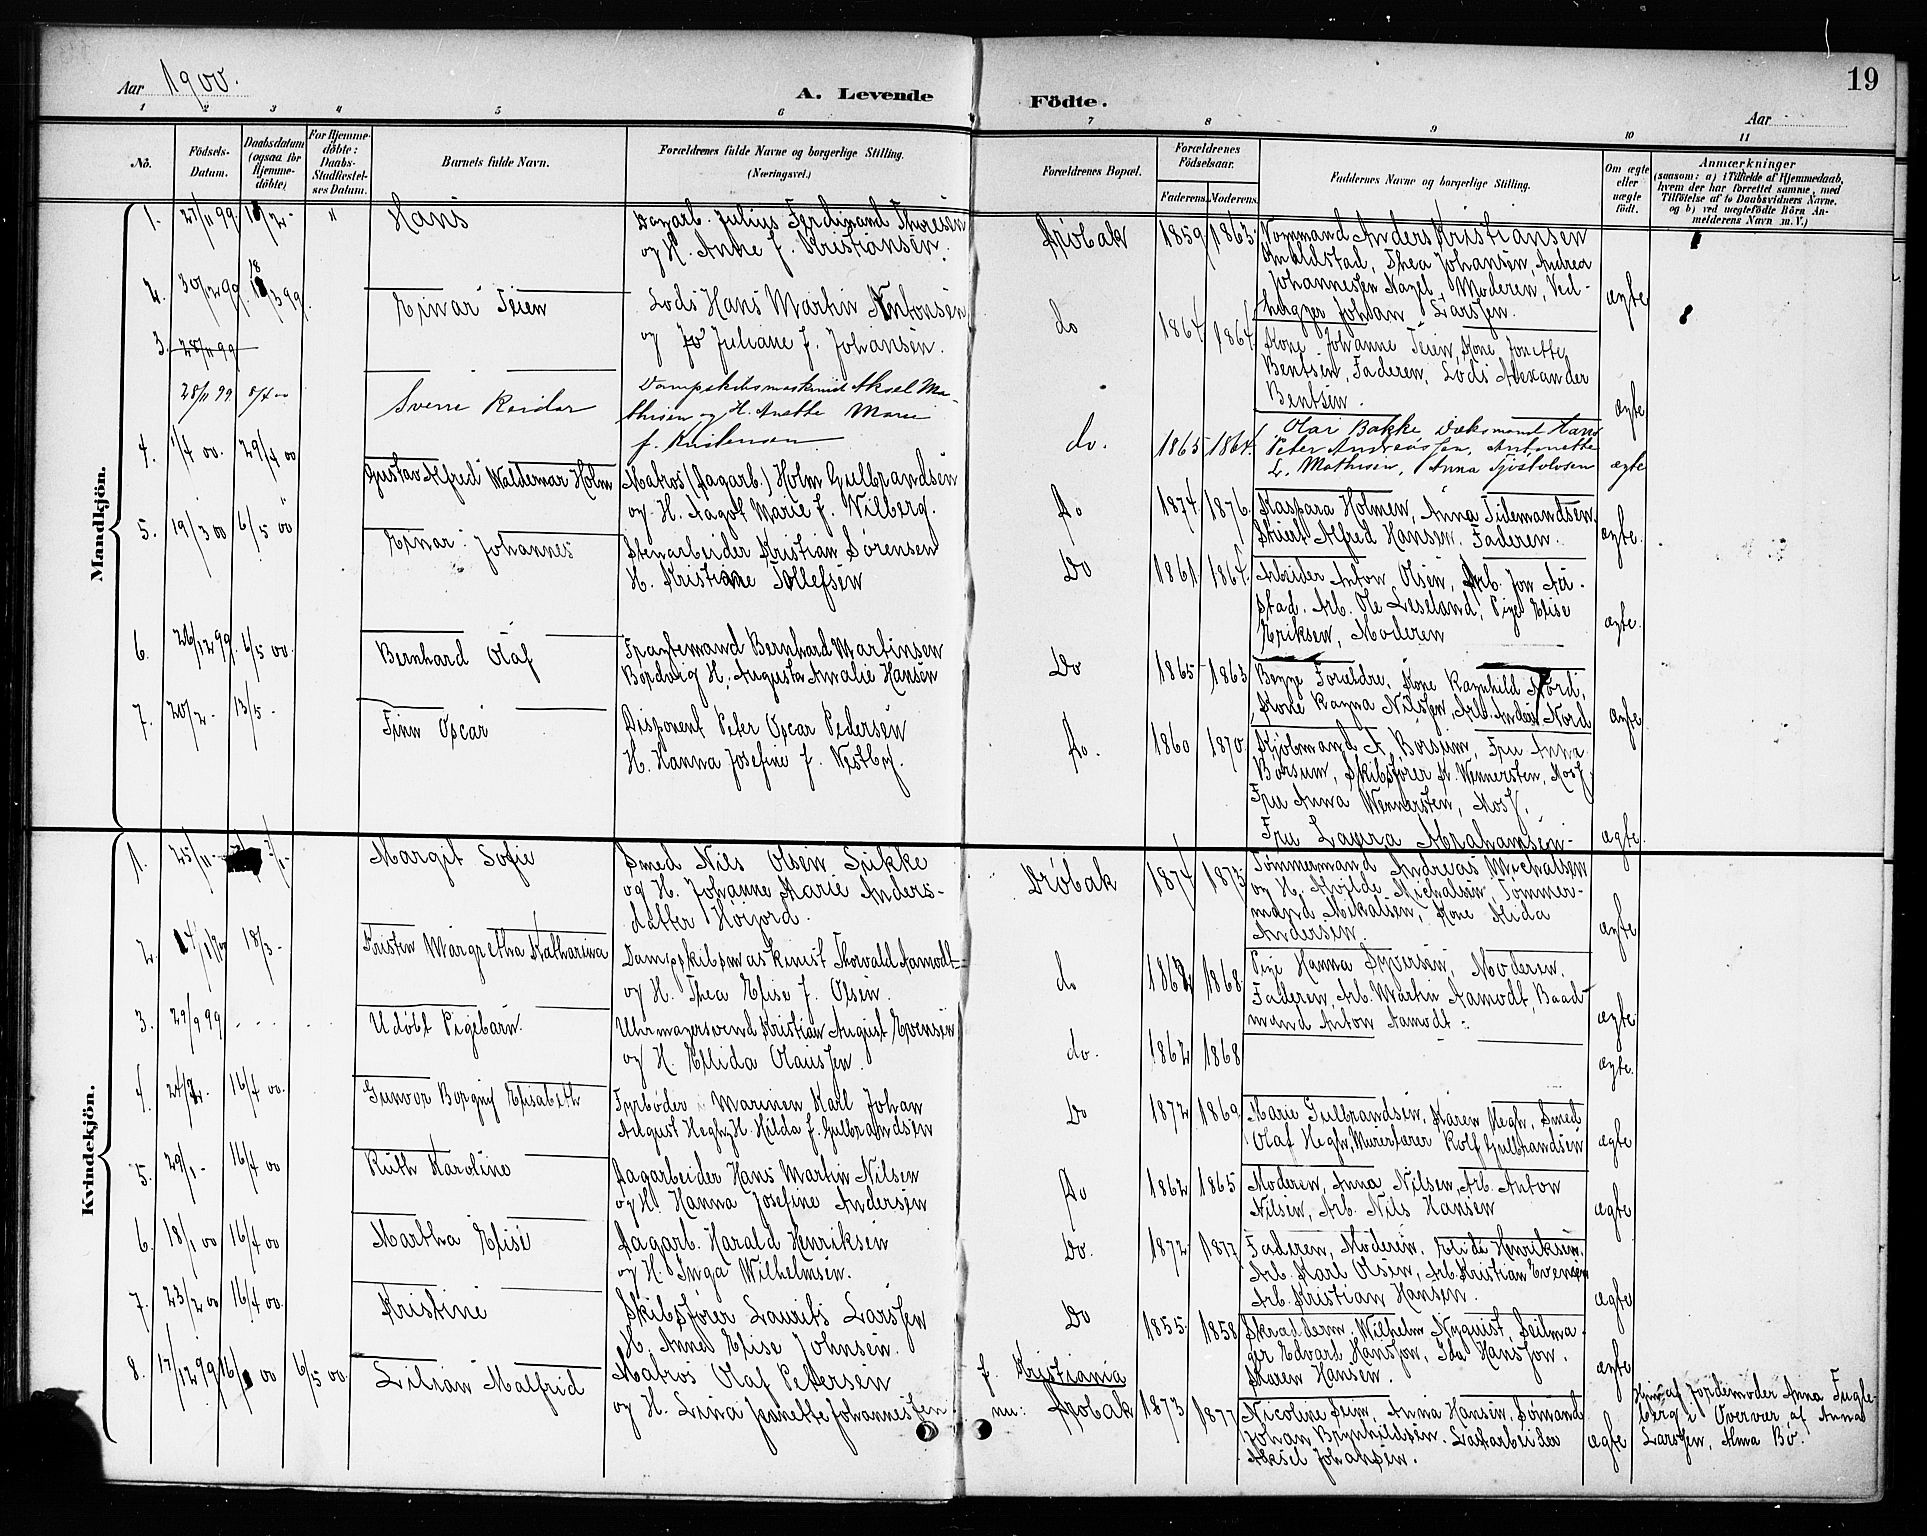 19
Aar 1900.
A. Levende Födte.
Aar
1 2 3 4 5 6 7 8 9 10 11
No.
Födsels-Datum.
Daabsdatum (ogsaa for Hjemme-döbte)
For Hjemme-döbte: Daabs-Stadfæstel-ses Datum.
Barnets fulde Navn.
Forældrenes fulde Navne og borgerlige Stilling. (Næringsvei.)
Forældrenes Bopæl.
Forældrenes Födselsaar.
Faderens. Moderens.
Faddernes Navne og borgerlige Stilling.
Om ægte eller uægte födt.
Anmærkninger
(saasom: a) i Tilfælde af Hjemmedaab,
hvem der har forrettet samme, med
Tilföielse af to Daabsvidners Navne.
og b) ved uægtefödte Börn An-
melderens Navn m. V.)
Mandkjön.
1. 27/11 99. Hans
Dagarb. Julius Ferdinand Thoresen
og H. Anne f. Kristiansen.
Dröbak 1859 1863.
Tommand Anders Kristiansen
Thea Johansen, Andrea
Johannesen Nagel, Moderen, Ved-
hugger Johan Larssen.
ægte
2. 30/12 99. Einar Teien
Lods Hans Martin Antonsen
og Jo Juliane f. Johansen.
do 1864 1864.
Kone Johanne Teien, Kone Jonette
Bentsen, Faderen, Lods Alexander
Bentsen.
ægte
3. 28/11 99
28/11 99 8/4 00 Sverre Reidar
Dampskibsmaskinist Aksel Ma-
thisen og H. Anette Marie
f. Kristensen
do. 1865 1864.
Olar Bakke Dæksmand Hans
Peter Andreassen, Antonette
L. Mathisen, Anna Gjistolvsen
ægte
4. 1/4 00. 29/4 00 Gustav Alfred Waldemar Holm
Matros (Dagarb.) Holm Gulbrandsen
og H. Aagot Marie f. Vilberg.
Do 1874. 1876.
Kaspara Holmen, Anna Tidemandsen,
Alfred Hansen. Faderen.
ægte.
5. 19/3 00 6/5 00 Einar Johannes
Stenarbeider Kristian Sörensen
H. Kristiane Tollefsen
Do 1861 1864.
Arbeider Anton Olsen, Arb. Jon Aa-
stad. Arb. Ole Leseland, Pige Elise
Eriksen, Moderen
ægte.
6. 26/12 99. 6/5 00. Bernhard Olaf
Fragtemand Bernhard Martinsen
Bordvig H. Augusta Amalie Hansen
Do 1865 1863
Begge Forældre, Kone Ragnhild Nord,
Kone Ragna Nilssen, Arb. Anders Nord
ægte
7. 20/2 - 13/5 - Finn Oscar
Disponent Peter Oscar Pedersen
H. Hanna Josefine f. Vestby.
Do. 1860 1870.
Kjöbmand A. Borsum, Fru Anna
Borsum, Skibsförer K. Wennersten, Mosf.
Fru Anna Wennersten, Mosf.
Fru Laura Abrahamsen.
ægte.
Kvindekjön.
1. 25/11 - Margit Sofie
Smed Nils Olsen Likke
og H. Johanne Marie Anders-
datter Höijord.
Dröbak 1874 1873
Tömmermand Andreas Michalsen
og H. Michalsen, Tömmer-
mand Mikalsen, Kone Alida
Andersen.
ægte
2. 18/3 - Kristin Margretha Katharina
Dampskibsmaskinist Thorvald Aamodt
og H. Thea Elise f. Olsen.
do 1868
Pige Hanna Syversen, Moderen.
Faderen, Arb. Martin Aamodt, Baad-
mand Anton Aamodt.
ægte
3. 29/9 99 Udöbt Pigebarn.
Uhrmagersvend Kristian August Evensen
og H. Ellida Olaussen.
do. 1862 1868
ægte.
4. 16/4 00. Gunvor Borgny Elisabeth
Fyrböder i Marinen Karl Johan
August Hegh, H. Hilda f. Gulbrandsen
Do 1872 1869
Marie Gulbrandsen, Karen Hegh, Smed
Olaf Hegh, Rolf Gulbrandsen
ægte
5. 29/1 - 16/4 00 Ruth Karoline
Dagarbeider Hans Martin Nilsen
og H. Hanna Josefine Andersen
Do 1862 1865
Moderen, Anna Nilsen, Arb. Anton
Nilsen, Arb. Nils Hansen
ægte
6. 18/1 00 16/4 00 Martha Elise
Dagarb. Harald Henriksen
og H. Inga Wilhelmsen.
Do. 1872 1877
Faderen, Moderen, Elida Henriksen.
Arb. Karl Olsen, Arb. Kristian Evensen
Arb. Kristian Hansen.
ægte
7. 23/2 00 16/4 00. Kristine
Skibsförer Laurits Larssen
H. Anne Elise Johnsen.
Do 1855. 1858
Skredderm. Wilhelm Nyquist, Seilma-
ger Edvard Hanssen, Ida Hanssen.
Maren Hansen.
ægte
8. 17/12 99 6/5 00 Lilian Malfrid
Matros Olaf Petersen
og H. Lina Jeanette Johannessen.
f. Kristiania
nu: Dröbak 1873 1877
Nicoline Anna Hansen, Sömand
Johan Brynhildsen. Lastarbeider
Aksel Johansen.
ægte
Hjm. af Jordemoder Anna Fugle-
berg i Overvær af Anna
Larssen, Alma Bö.